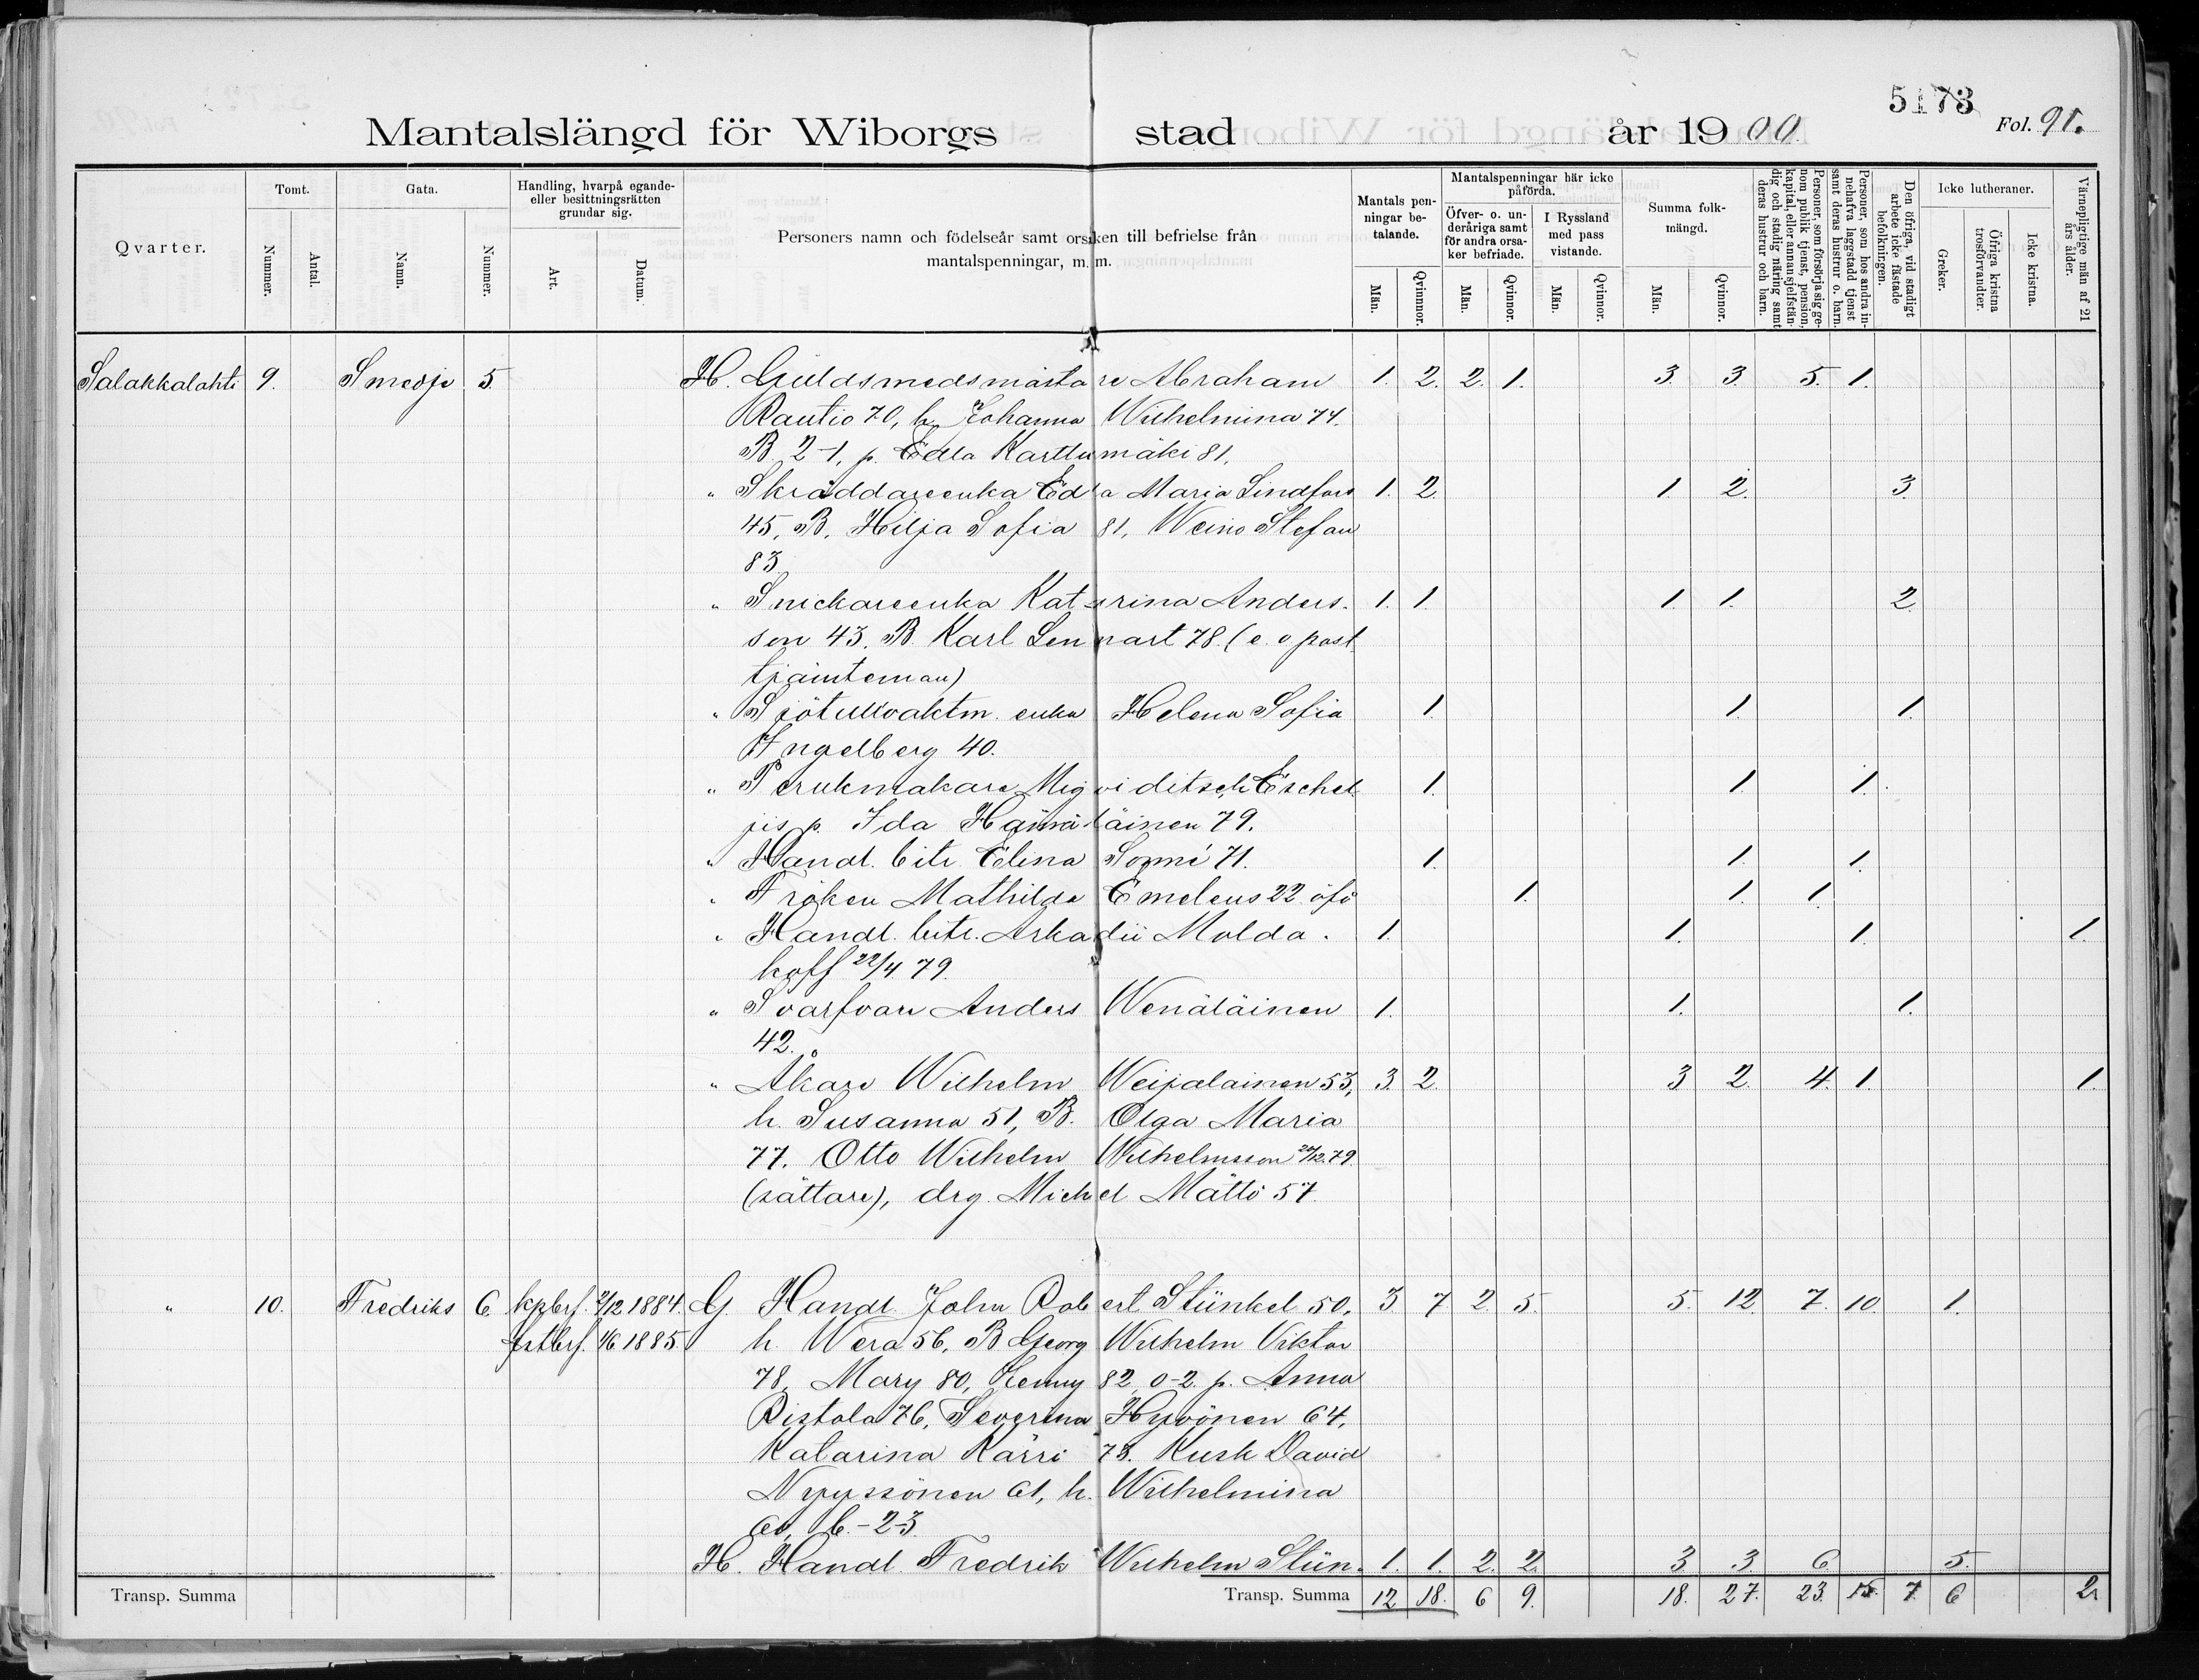 5173
Mantalslängd för Wiborgs stad år 1900. Fol. 91.
Qvarter. Tomt. Nummer. Antal. Gata. Namn. Nummer. Handling, hvarpå egande- eller besittningsrätten grundar sig. Art. Datum.
Personers namn och födelseår samt orsaken till befrielse från mantalspenningar, m. m.
Mantals penningar betalande. Män. Qvinnor.
Mantalspenningar här icke påförda. Öfver- o. underåriga samt för andra orsaker befriade. Män. Qvinnor. I Ryssland med pass vistande. Män. Qvinnor.
Summa folkmängd. Män. Qvinnor.
Personer, som försörja sig genom publik tjenst, pension, kapital, eller annan sjelfständig och stadig näring samt deras hustrur och barn.
Personer, som hos andra innehafva laggstadd tjenst samt deras hustrur o. barn.
Den öfriga, vid stadigt arbete icke fästade befolkningen.
Icke lutheraner. Greker. Öfriga kristna trosförvandter. Icke kristna.
Värnepligtige män af 21 års ålder.
Salakkalahti 9. Smedje 5. H. Guldsmedsmästare Abraham 1. 2. 2. 1. 3. 3. 5. 1.
Rautio 70, h. Johanna Wilhelmina 74.
B. 2-1, p. Edla Karttumäki 81.
" Skräddareenka Edla Maria Lindfors 1. 2. 1. 2. 3.
45, B. Hilja Sofia 81, Weino Stefan
83.
" Snickareenka Katarina Anders- 1. 1. 1. 1. 2.
son 43. B. Karl Lennart 78. (e. o. post
tjänteman)
" Sjötullvaktm. enka Helena Sofia 1. 1. 1.
Ingelberg 40.
" Perukmakare Migviditsch Eschel- 1. 1. 1.
jis p. Ida Hämäläinen 79.
" Handl. bitr. Elina Sonni 71. 1. 1. 1.
" Fröken Mathilda Emeleus 22 öfå 1. 1. 1.
" Handl. bitr. Arkadii Molda- 1. 1. 1. 1.
koff 22/4 79.
" Svarfvare Anders Wenäläinen 1. 1. 1.
42.
" Åkare Wilhelm Weijalainen 53, 3. 2. 3. 2. 4. 1. 1.
h. Susanna 51, B. Olga Maria
77. Otto Wilhelm Wilhelmsson 24/12.79.
(sättare), drg. Michel Mättö 57.
" 10. Fredriks 6. kpbrf. 2/12 1884. G. Handl. John Robert Stünkel 50, 3. 7. 2. 5. 5. 12. 7. 10. 1.
fstbrf. 1/6 1885. h. Wera 56, B. Georg Wilhelm Viktor
78, Mary 80, Jenny 82, 0-2. p. Anna
Ristola 76, Severina Hyvönen 64,
Katarina Kärri 78. Kusk David
Nyyssönen 61, h. Wilhelmina
60, b.-2-3.
H. Handl. Fredrik Wilhelm Stün- 1. 1. 2. 2. 3. 3. 6. 5.
Transp. Summa Transp. Summa 12 18. 6 9. 18. 27. 23. 15. 7. 6 2.